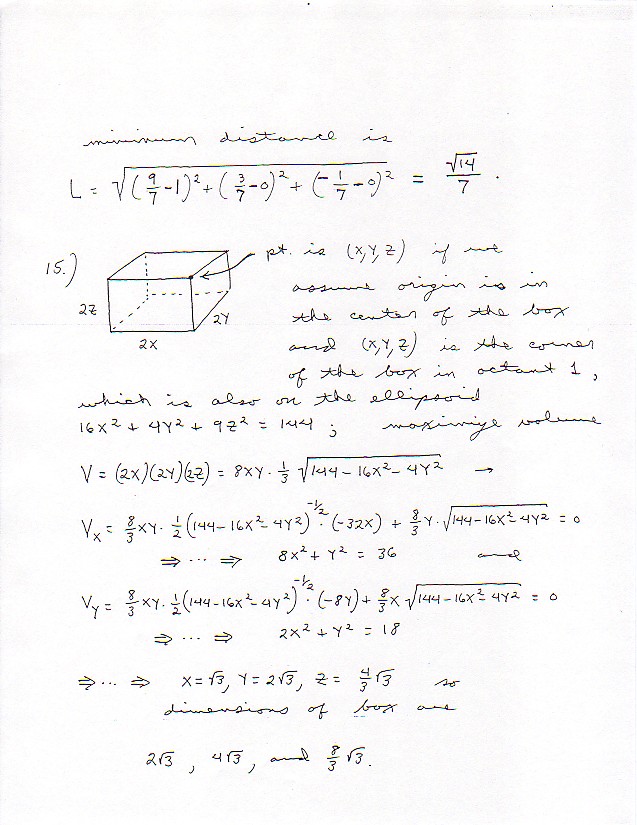 minimum distance is
L = √((9/7 - 1)² + (3/7 - 0)² + (-1/7 - 0)²) = √14/7 .
15.) pt. is (x, y, z) if we
assume origin is in
2z the center of the box
2y
2x and (x, y, z) is the corner
of the box in octant 1,
which is also on the ellipsoid
16x² + 4y² + 9z² = 144 ; maximize volume
V = (2x)(2y)(2z) = 8xy · 1/3 √(144 - 16x² - 4y²) →
Vx = 8/3 xy · 1/2 (144 - 16x² - 4y²)^(-1/2) · (-32x) + 8/3 y · √(144 - 16x² - 4y²) = 0
⇒ ··· ⇒ 8x² + y² = 36 and
Vy = 8/3 xy · 1/2 (144 - 16x² - 4y²)^(-1/2) · (-8y) + 8/3 x √(144 - 16x² - 4y²) = 0
⇒ ··· ⇒ 2x² + y² = 18
⇒ ··· ⇒ x = √3, y = 2√3, z = 4/3 √3 so
dimensions of box are
2√3 , 4√3 , and 8/3 √3.